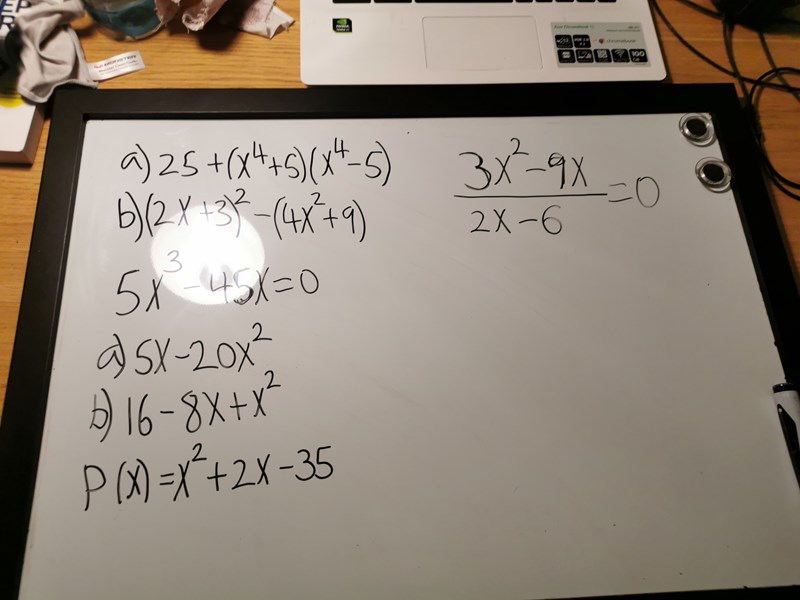 a) 25 + (x⁴+5)(x⁴-5)
b) (2x+3)² - (4x²+9)
5x³ - 45x = 0
a) 5x - 20x²
b) 16 - 8x + x²
P(x) = x² + 2x - 35
3x² - 9x
2x - 6
= 0
NVIDIA
100